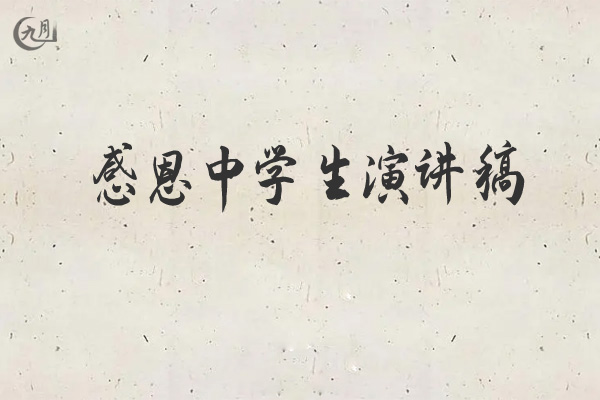 九月
感恩中学生演讲稿